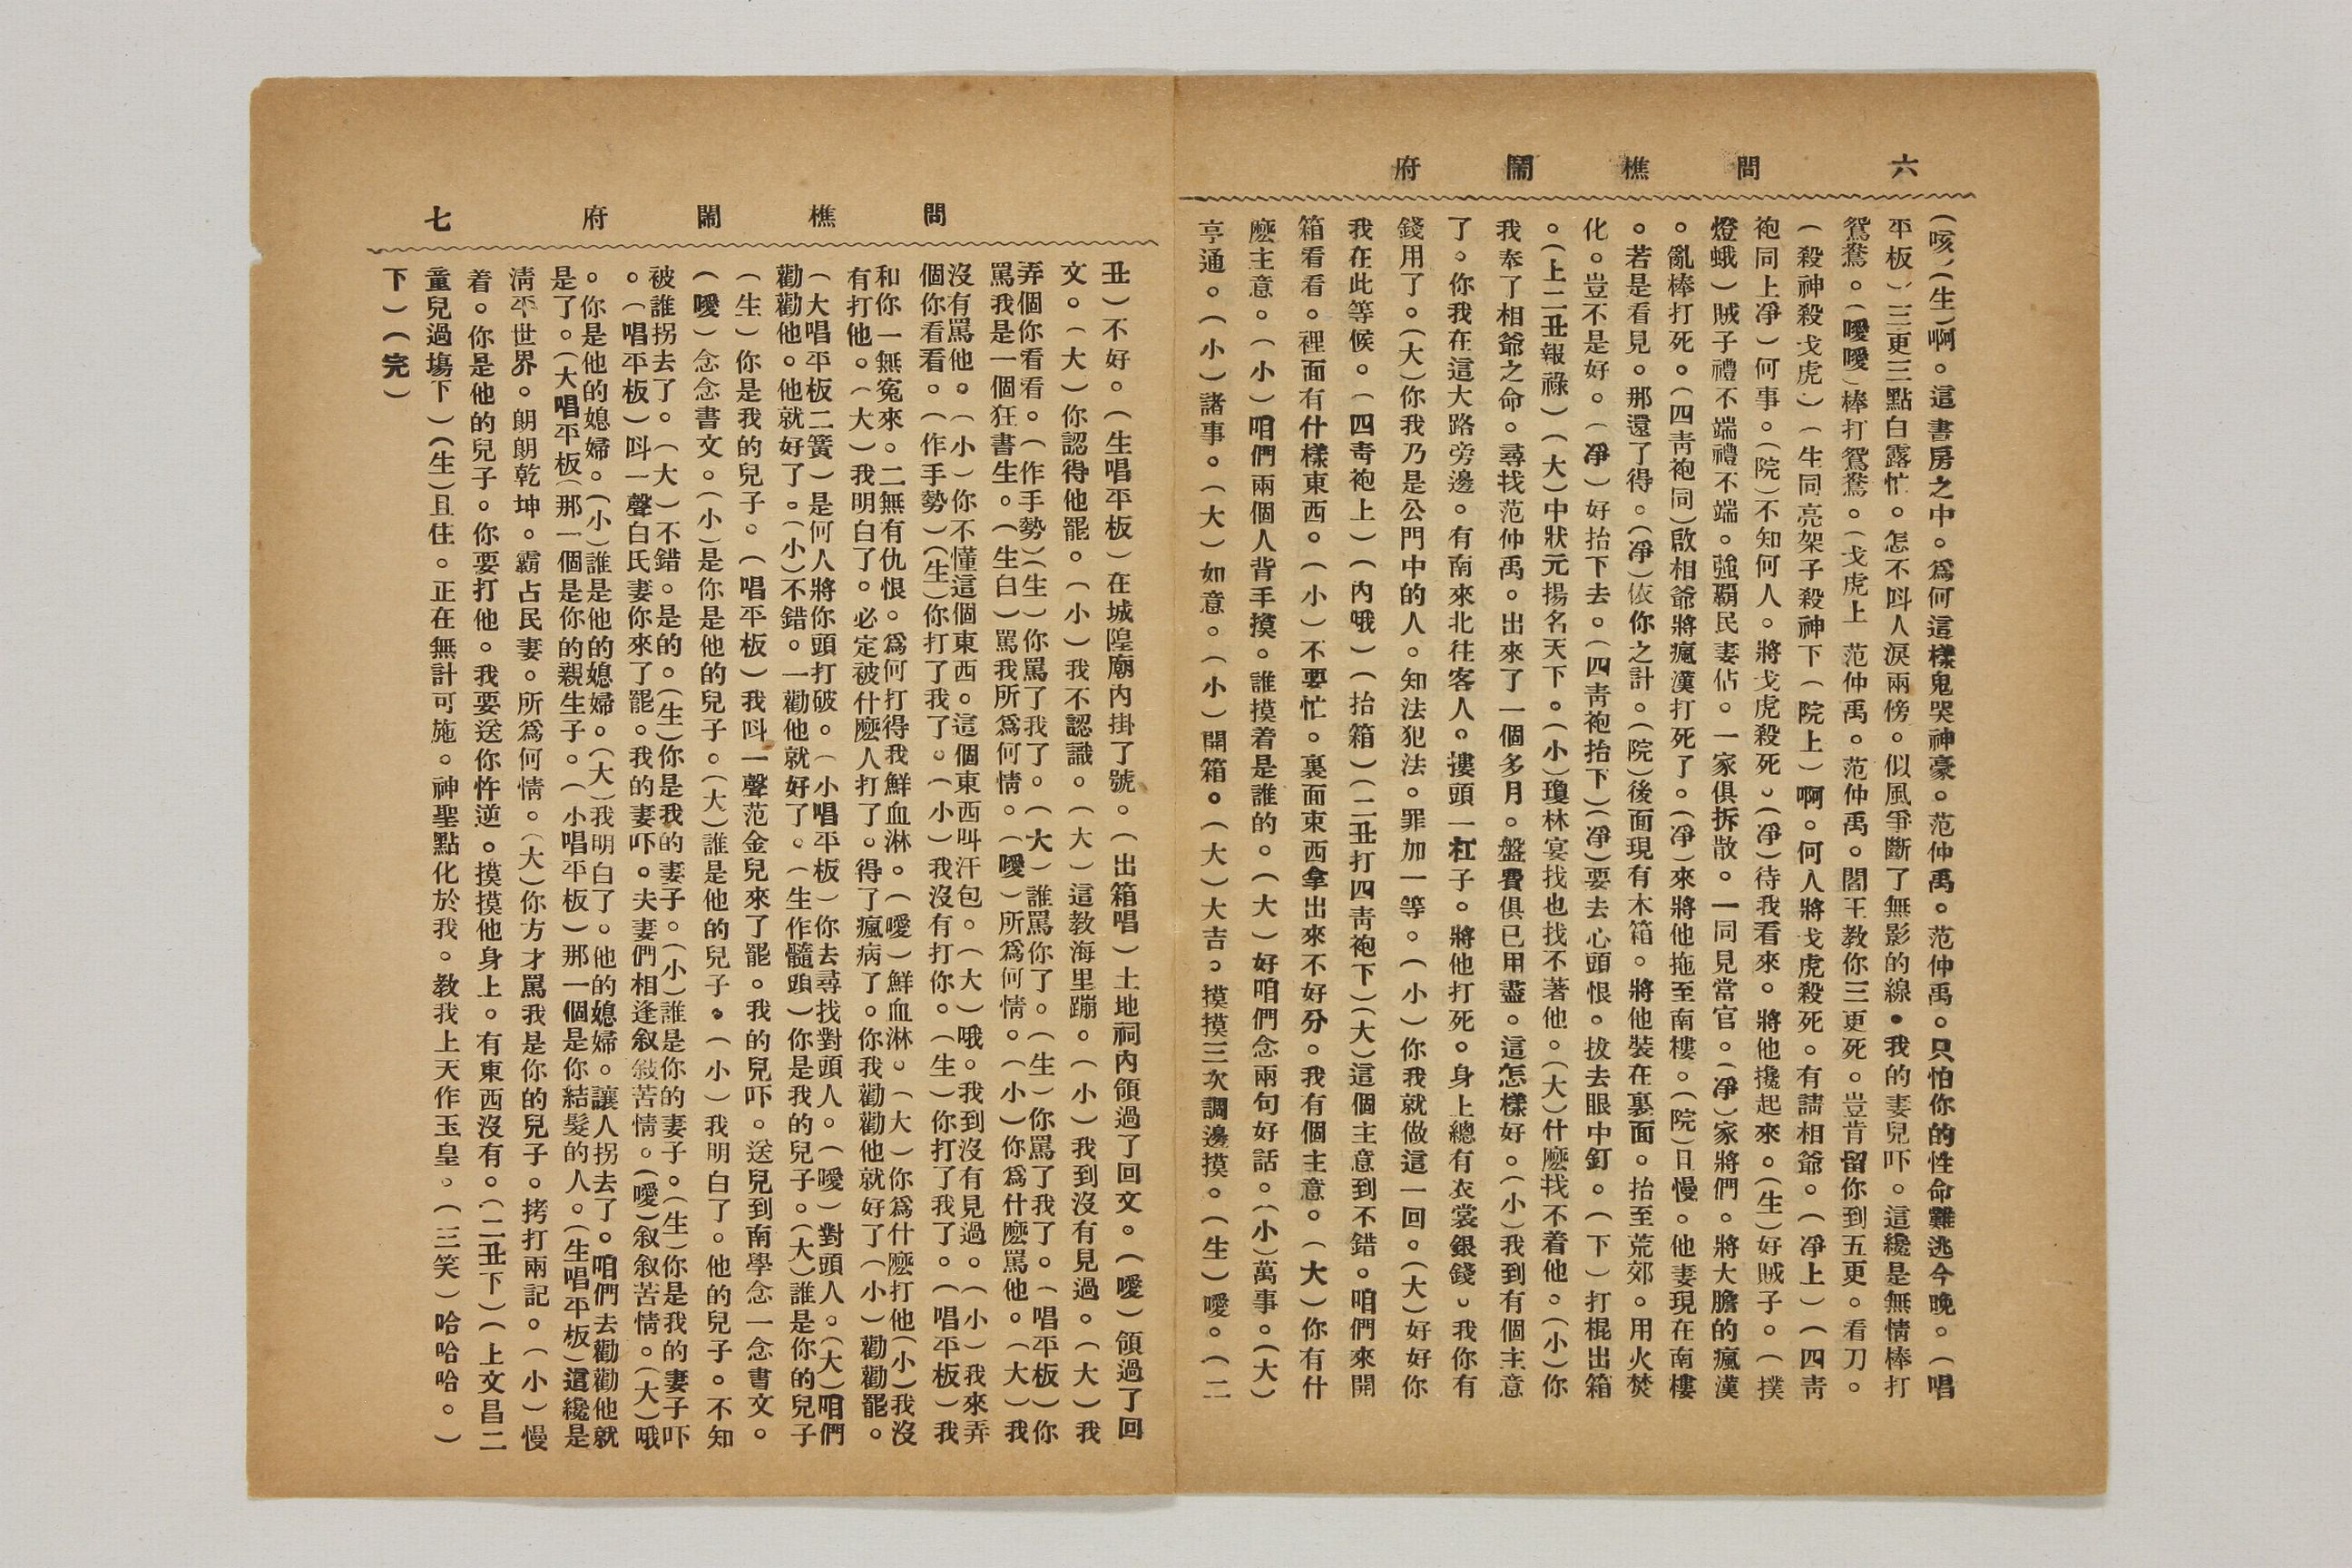 六　問樵鬧府
(咳、(生)啊。這書房之中。爲何這樣鬼哭神豪。范仲禹。范仲禹。范仲禹。只怕你的性命難逃今晚。(唱
平板)三更三點白露忙。怎不呌人淚兩傍。似風爭斷了無影的線。我的妻兒吓。這纔是無情棒打
鴛鴦。(嗳嗳)棒打鴛鴦。(戈虎上 范仲禹。范仲禹。閻王教你三更死。豈肯留你到五更。看刀。
(殺神殺戈虎)(生同亮架子殺神下(院上)啊。何人將戈虎殺死。有請相爺。(凈上)(四靑
袍同上凈)何事。(院)不知何人。將戈虎殺死。(凈)待我看來。將他攙起來。(生)好賊子。(撲
燈蛾)賊子禮不端禮不端。強覇民妻佔。一家俱拆散。一同見當官。(凈)家將們。將大膽的瘋漢
。亂棒打死。(四靑袍同)啟相爺將瘋漢打死了。(凈)來將他拖至南樓。(院)且慢。他妻現在南樓
。若是看見。那還了得。(凈)依你之計。(院)後面現有木箱。將他裝在裏面。抬至荒郊。用火焚
化。豈不是好。(凈)好抬下去。(四靑袍抬下)(凈)要去心頭恨。拔去眼中釘。(下)打棍出箱
。(上二丑報祿)(大)中狀元揚名天下。(小)瓊林宴找也找不著他。(大)什麽找不着他。(小)你
我奉了相爺之命。尋找范仲禹。出來了一個多月。盤費俱已用盡。這怎樣好。(小)我到有個主意
了。你我在這大路旁邊。有南來北往客人。摟頭一杠子。將他打死。身上總有衣裳銀錢。我你有
錢用了。(大)你我乃是公門中的人。知法犯法。罪加一等。(小)你我就做這一回。(大)好好你
我在此等候。(四靑袍上)(內哦)(抬箱)(二丑打四靑袍下)(大)這個主意到不錯。咱們來開
箱看看。裡面有什樣東西。(小)不要忙。裏面東西拿出來不好分。我有個主意。(大)你有什
麽主意。(小)咱們兩個人背手摸。誰摸着是誰的。(大)好咱們念兩句好話。(小)萬事。(大)
亨通。(小)諸事。(大)如意。(小)開箱。(大)大吉。摸摸三次調邊摸。(生)嗳。(二
問樵鬧府　七
丑)不好。(生唱平板)在城隍廟內掛了號。(出箱唱)土地祠內領過了回文。(嗳)領過了回
文。(大)你認得他罷。(小)我不認識。(大)這教海里蹦。(小)我到沒有見過。(大)我
弄個你看看。(作手勢)(生)你罵了我了。(大)誰罵你了。(生)你罵了我了。(唱平板)你
罵我是一個狂書生。(生白)罵我所爲何情。(嗳)所爲何情。(小)你爲什麽罵他。(大)我
沒有罵他。(小)你不懂這個東西。這個東西呌汗包。(大)哦。我到沒有見過。(小)我來弄
個你看看。(作手勢)(生)你打了我了。(小)我沒有打你。(生)你打了我了。(唱平板)我
和你一無冤來。二無有仇恨。爲何打得我鮮血淋。(嗳)鮮血淋。(大)你爲什麽打他(小)我沒
有打他。(大)我明白了。必定被什麽人打了。得了瘋病了。你我勸勸他就好了(小)勸勸罷。
(大唱平板二簧)是何人將你頭打破。(小唱平板)你去尋找對頭人。(嗳)對頭人。(大)咱們
勸勸他。他就好了。(小)不錯。一勸他就好了。(生作髓頭)你是我的兒子。(大)誰是你的兒子
(生)你是我的兒子。(唱平板)我呌一聲范金兒來了罷。我的兒吓。送兒到南學念一念書文。
(嗳)念念書文。(小)是你是他的兒子。(大)誰是他的兒子。(小)我明白了。他的兒子。不知
被誰拐去了。(大)不錯。是的。(生)你是我的妻子。(小)誰是你的妻子。(生)你是我的妻子吓
。(唱平板)呌一聲白氏妻你來了罷。我的妻吓。夫妻們相逢叙敍苦情。(嗳)叙叙苦情。(大)哦
。你是他的媳婦。(小)誰是他的媳婦。(大)我明白了。他的媳婦。讓人拐去了。咱們去勸勸他就
是了。(大唱平板(那一個是你的親生子。(小唱平板)那一個是你結髮的人。(生唱平板)這纔是
淸平世界。朗朗乾坤。霸占民妻。所爲何情。(大)你方才罵我是你的兒子。拷打兩記。(小)慢
着。你是他的兒子。你要打他。我要送你忤逆。摸摸他身上。有東西沒有。(二丑下)(上文昌二
童兒過塲下)(生)且住。正在無計可施。神聖點化於我。教我上天作玉皇。(三笑)哈哈哈。)
下)(完)